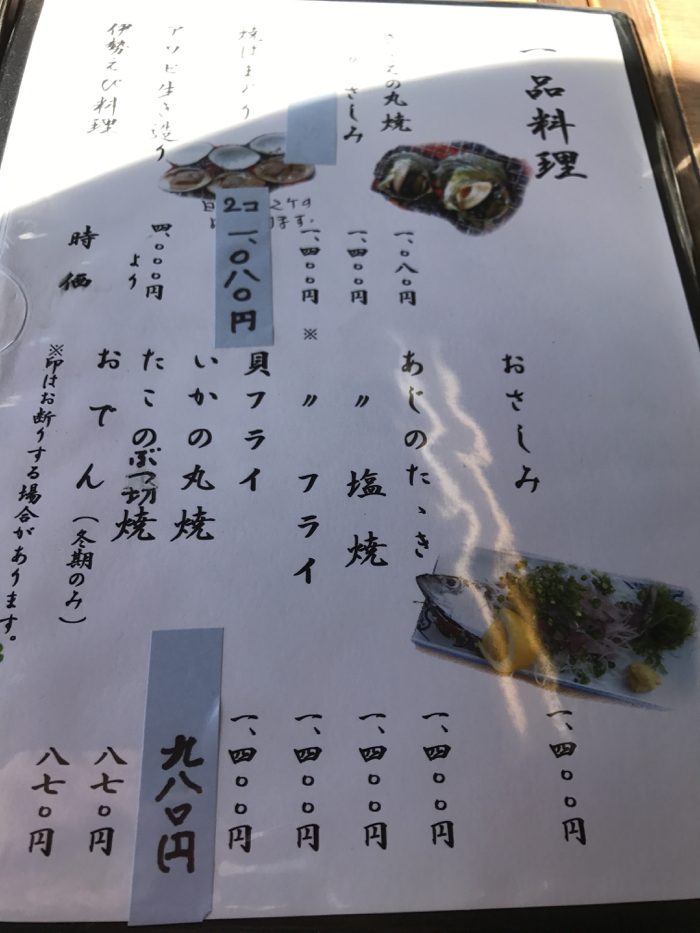 一品料理
さざえの丸焼
一、〇八〇円
〃 さしみ
一、四〇〇円
一、四〇〇円
焼はまぐり
2コ
一、〇八〇円
アワビ生き造り
四、〇〇〇円
より
伊勢えび料理
時価
おさしみ
一、四〇〇円
あじのたゝき
一、四〇〇円
〃 塩焼
一、四〇〇円
※ 〃 フライ
一、四〇〇円
貝フライ
一、四〇〇円
いかの丸焼
九八〇円
たこのぶつ切焼
八七〇円
おでん(冬期のみ)
八七〇円
※印はお断りする場合があります。